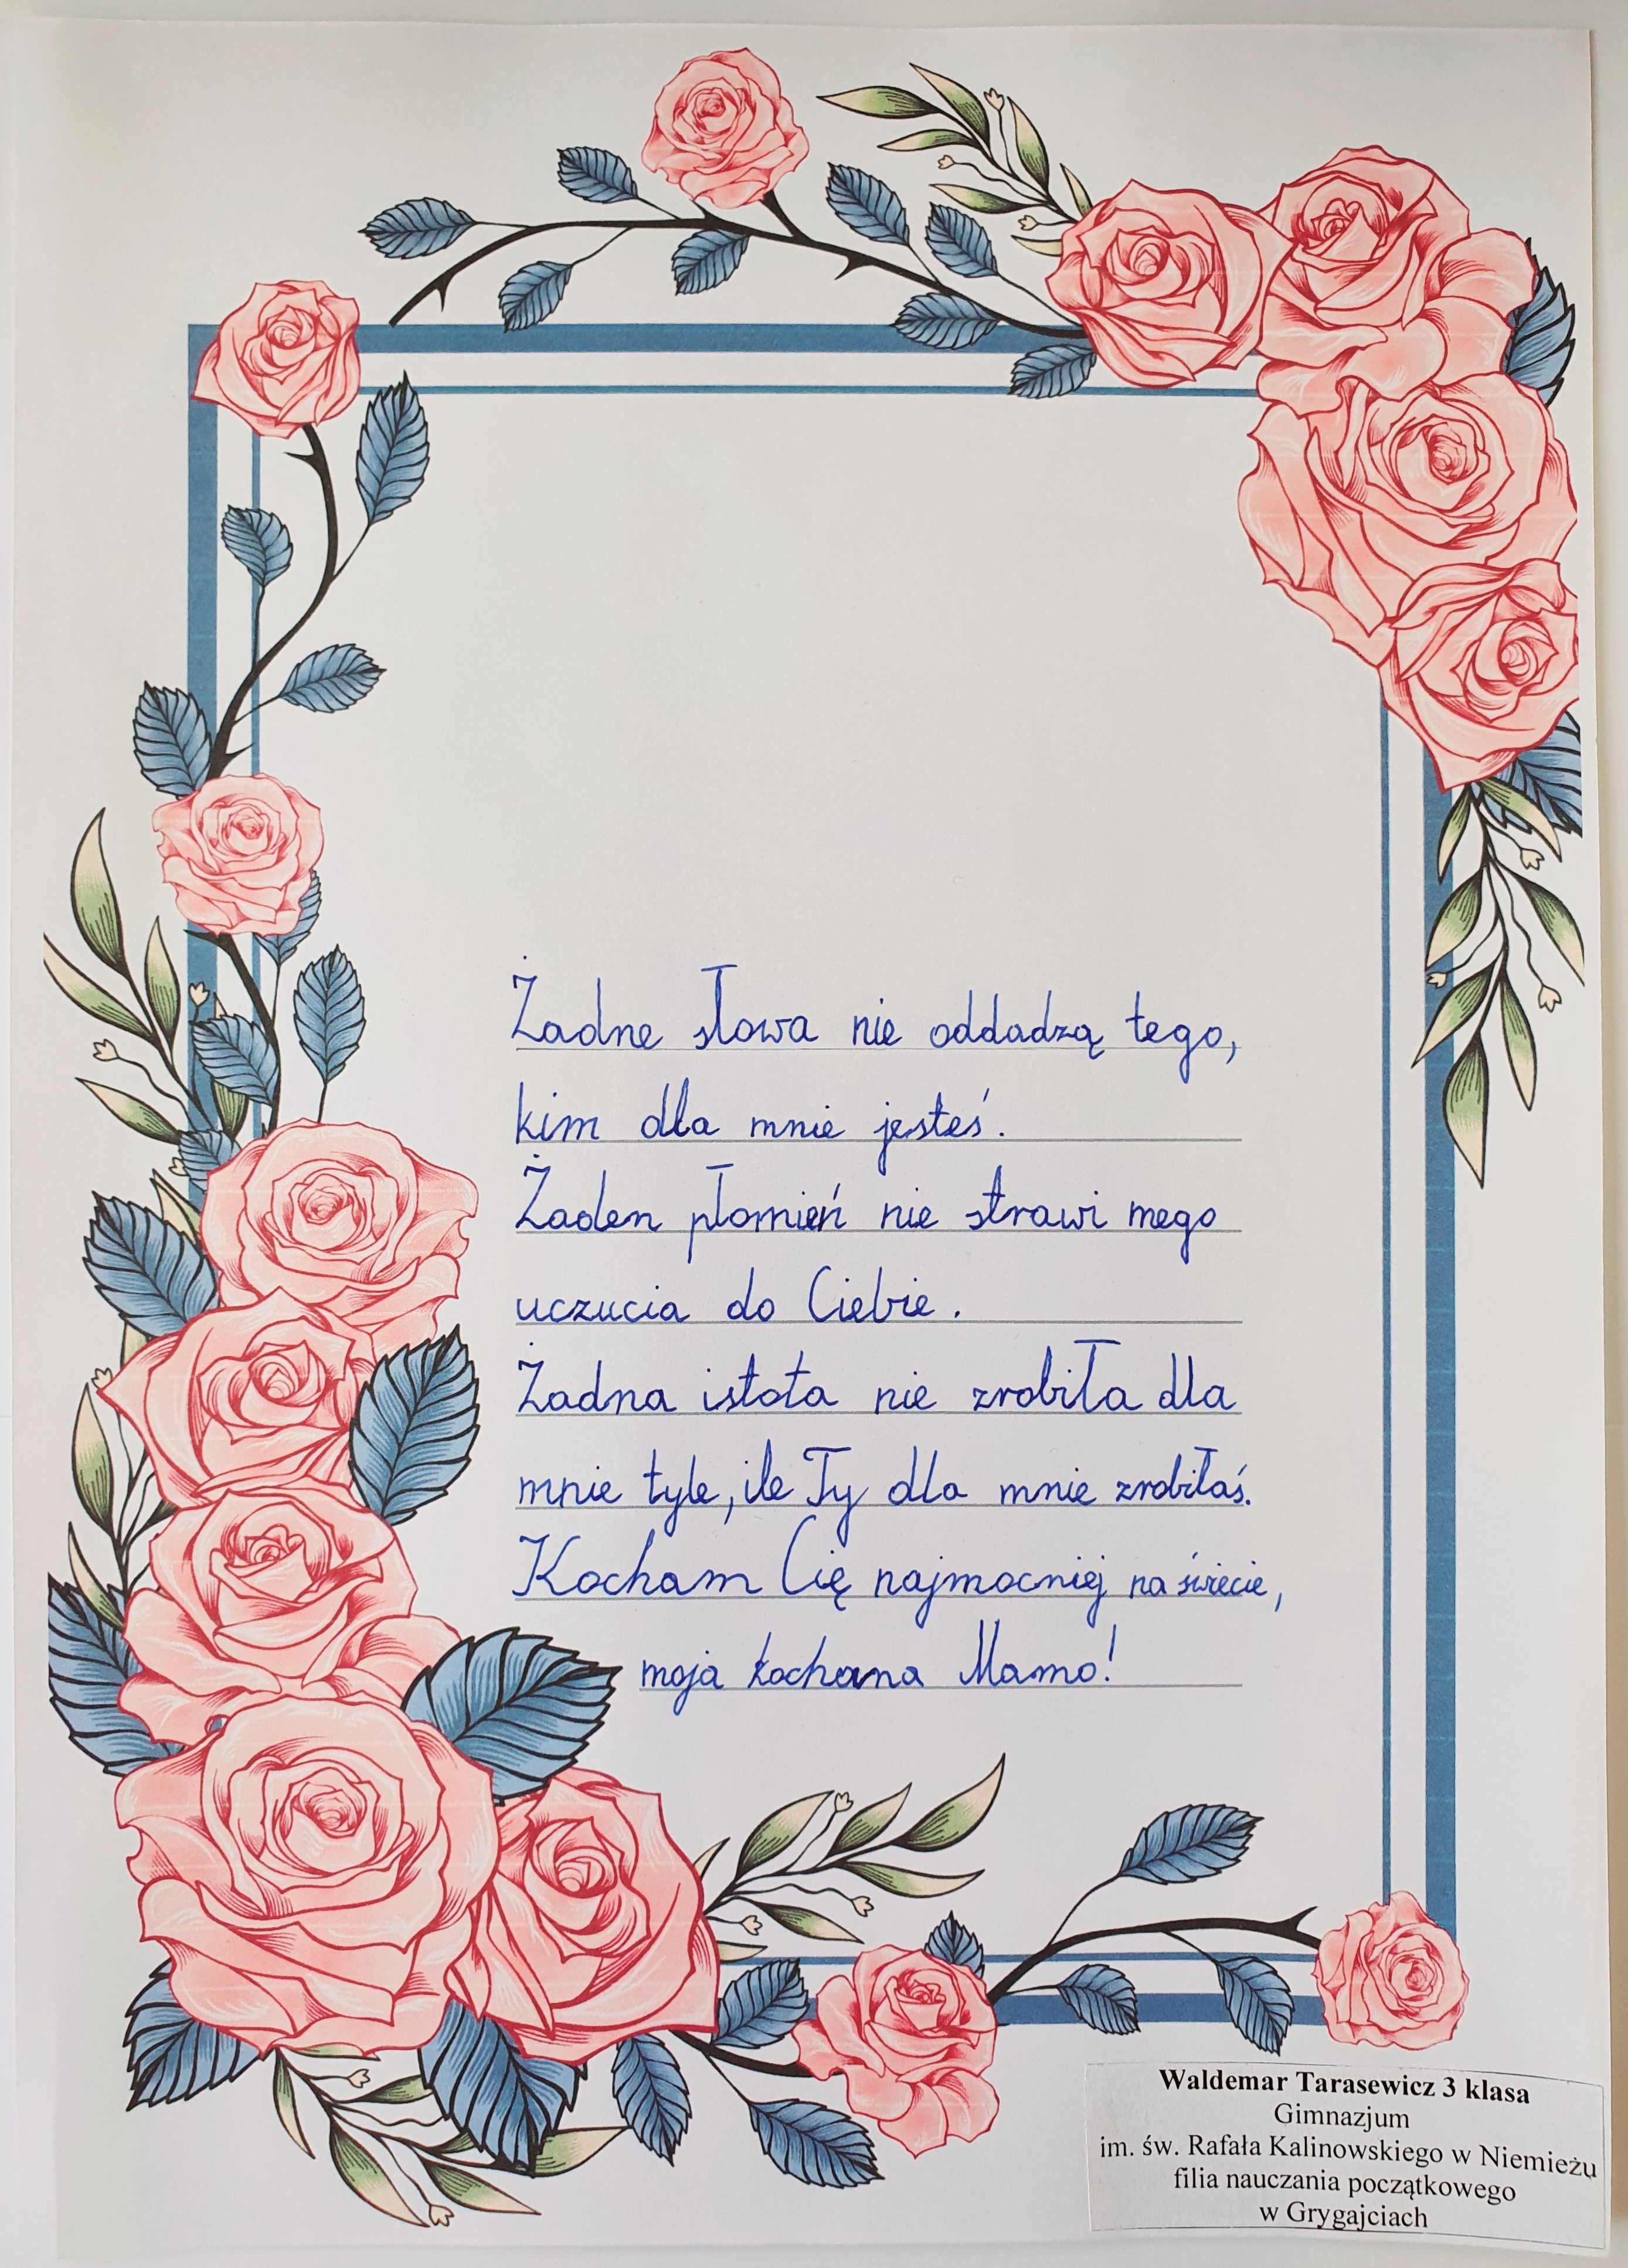 Żadne słowa nie oddadzą tego,
kim dla mnie jesteś.
Żaden płomień nie strawi mego
uczucia do Ciebie.
Żadna istota nie zrobiła dla
mnie tyle, ile Ty dla mnie zrobiłaś.
Kocham Cię najmocniej na świecie,
moja kochana Mamo!
Waldemar Tarasewicz 3 klasa
Gimnazjum
im. św. Rafała Kalinowskiego w Niemieżu
filia nauczania początkowego
w Grygajciach